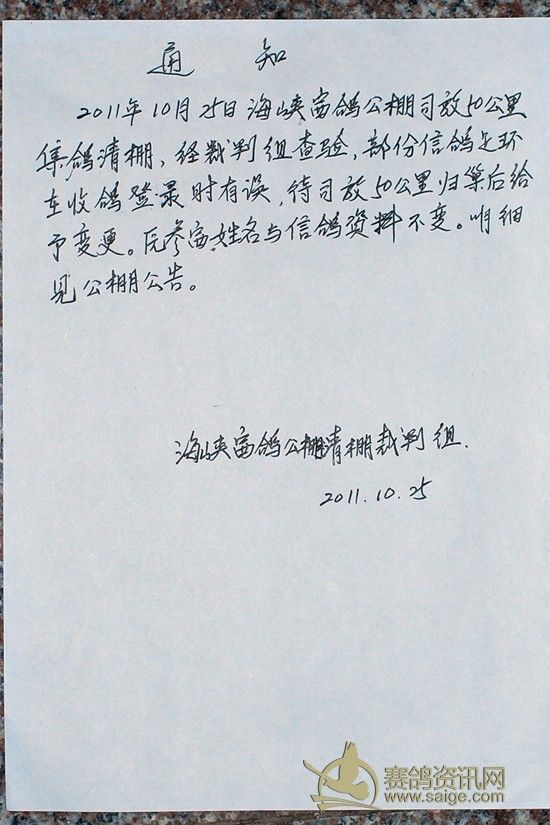 通 知
2011年10月25日海峡赛鸽公棚司放50公里
集鸽清棚，经裁判组查验，部份信鸽足环
在收鸽登录时有误，待司放50公里归巢后给
予变更。反参赛姓名与信鸽资料不变。明细
见公棚公告。
海峡赛鸽公棚清棚裁判组.
2011.10.25
赛鸽资讯网
www.saige.com